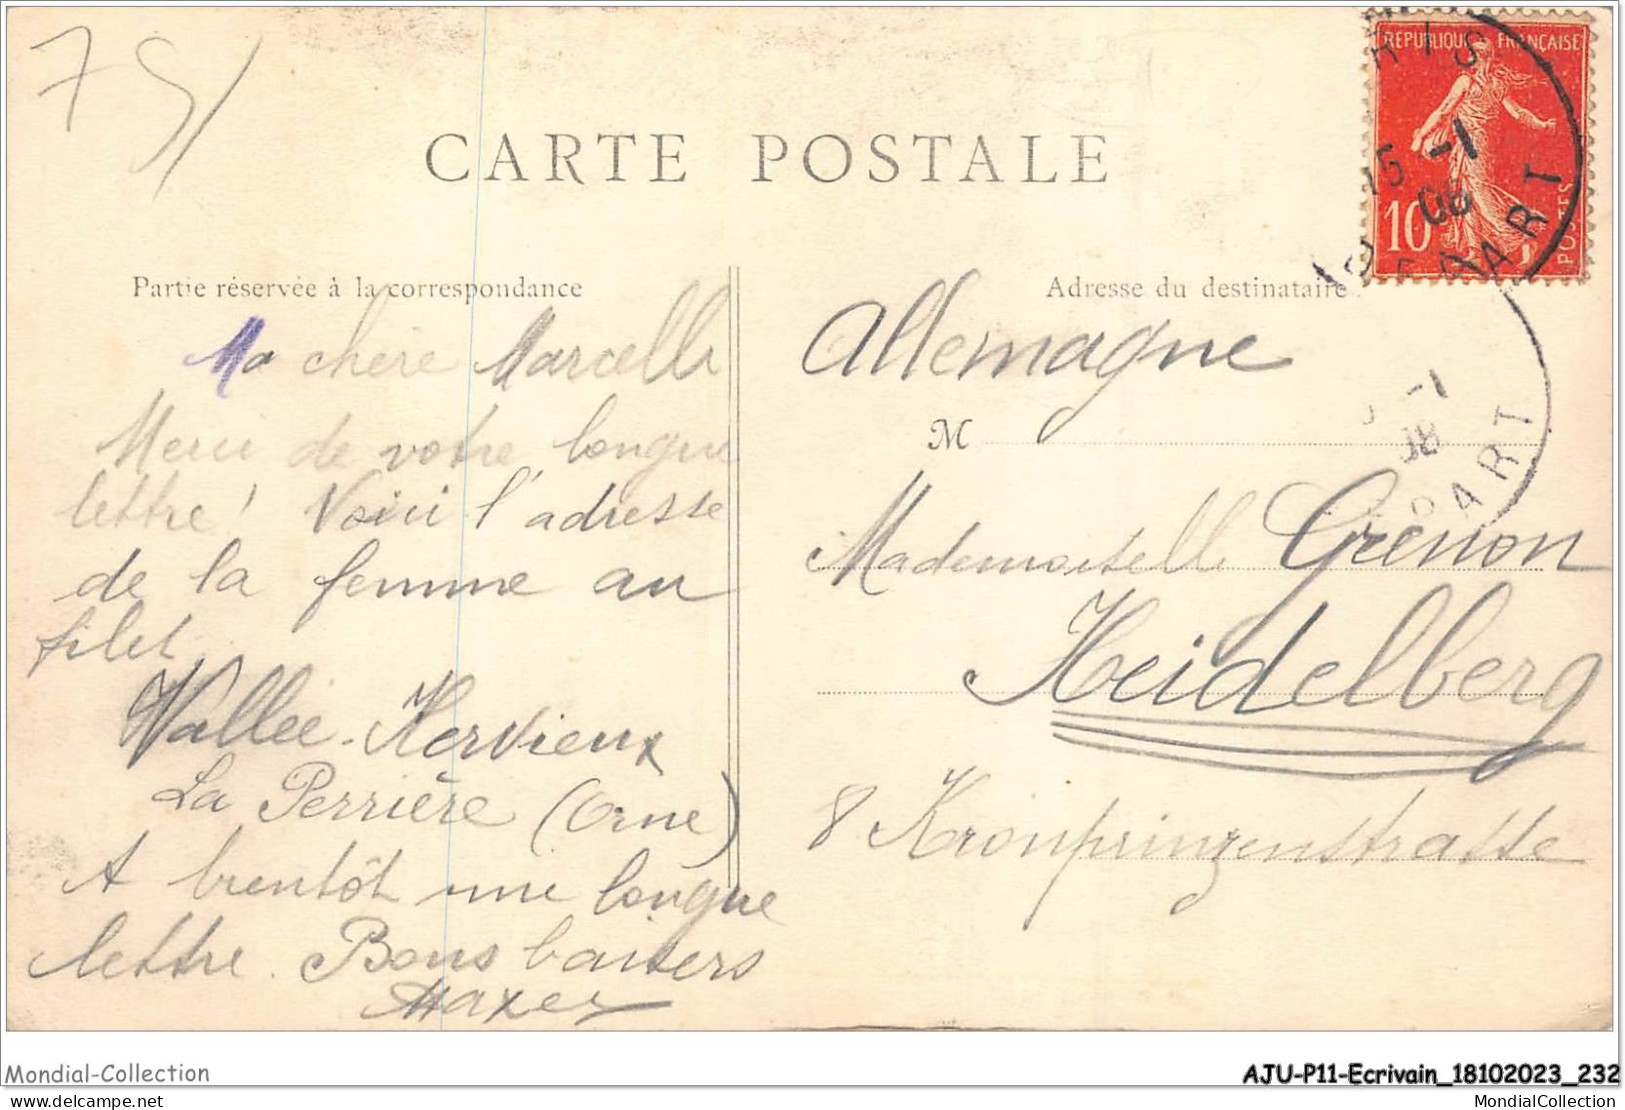 75
CARTE POSTALE
REPUBLIQUE FRANÇAISE
10
POSTES
15 -1
08
DEPART
Partie réservée à la correspondance
Ma chère Marcelle
Merci de votre longue
lettre! Voici l'adresse
de la femme au
filet
Vallée-Hervieux
La Perrière (Orne)
A bientôt une longue
lettre. Bons baisers
Adresse du destinataire
Allemagne
M
-1
08
PART
Mademoiselle Grenon
Heidelberg
8 Kronprinzenstrasse
Mondial-Collection
AJU-P11-Ecrivain_18102023_232
delcampe.net
MondialCollection